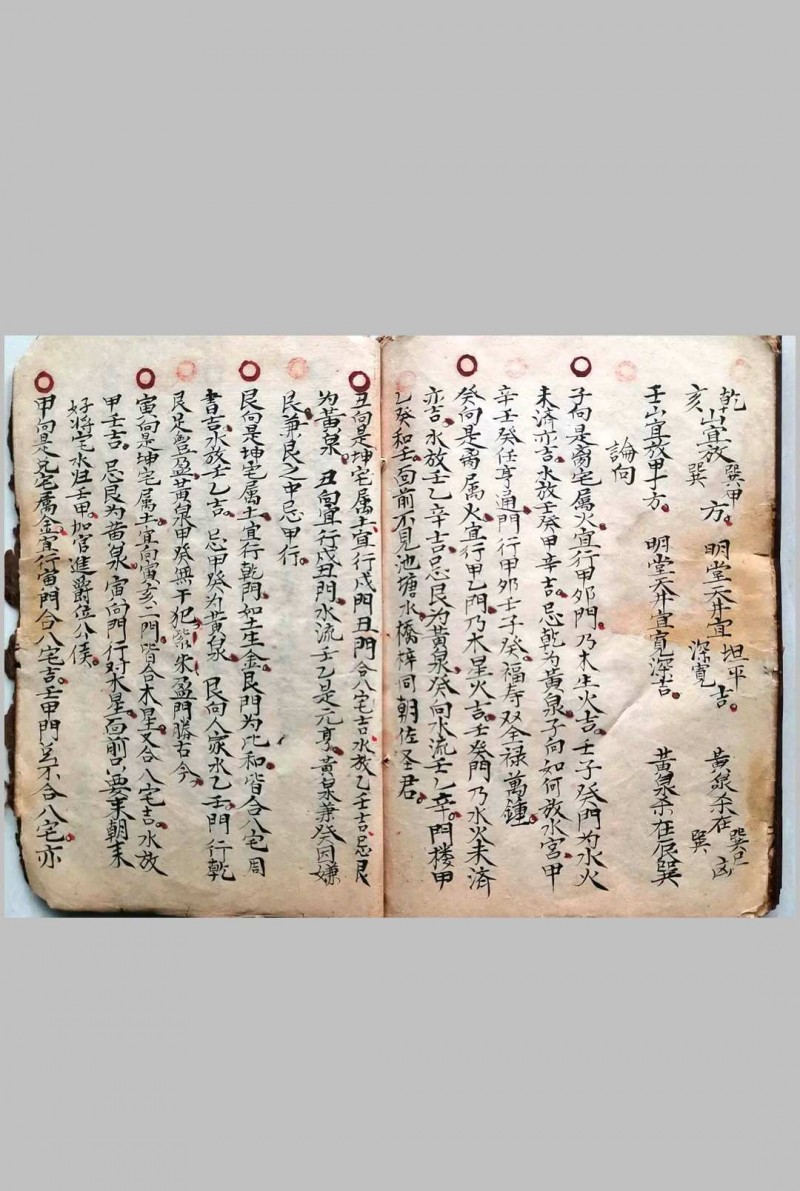 乾亥山宜放巽甲巽方。明堂天井宜坦平深寬吉。黃泉杀在巽巳巽凶
壬山宜放甲丁方。明堂天井宜寬深吉。黃泉杀在辰巽
論向
子向是离宅属火宜行甲卯門乃木生火吉。壬子癸門为水火
未済亦吉。水放壬癸甲辛吉。忌乾为黃泉子向如何放水宮甲
辛壬癸任亨通門行甲卯壬子癸。福寿双全禄萬鍾。
癸向是离属火宜行甲乙門乃木星火吉。壬癸門乃水火未済
亦吉。水放壬乙辛吉。忌艮为黃泉癸向水流壬乙辛。門楼甲
乙癸和壬面前不見池塘水橋梓同朝佐圣君。
丑向是坤宅属土宜行戍門丑門合八宅吉水放乙壬吉忌艮
为黃泉。丑向宜行戍丑門水流壬乙是元亨。黃泉兼癸因嫌
艮兼艮之中忌甲行。
艮向是坤宅属土宜行乾門如土生金。艮門为比和皆合八宅周
書吉。水放壬乙吉。忌甲癸为黃泉。艮向人家水乙壬。門行乾
艮足豊盈。黃泉甲癸無干犯紫朱盈門勝古今。
寅向是坤宅属土宜向寅亥二門皆合木星又合八宅吉。水放
甲壬吉。忌艮为黃泉寅向門行对木星面前只要来朝来
好将宅水归壬甲加官進爵位公侯。
甲向是兑宅属金宜行寅門合八宅吉壬甲門並不合八宅亦